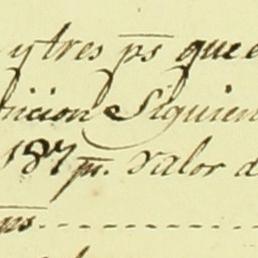 y tres ps que
dicion Siguien
187 ps. Valor d
ps.